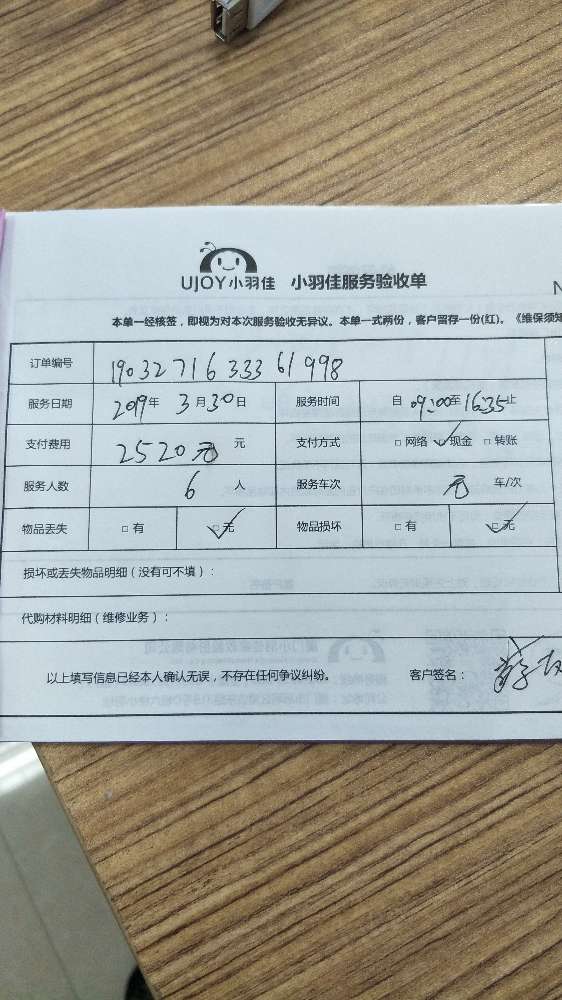 UJOY小羽佳 小羽佳服务验收单
N
本单一经核签，即视为对本次服务验收无异议。本单一式两份，客户留存一份(红)。《维保须知
订单编号 190327163336 1998
服务日期 2019年 3月30日 服务时间 自 09:00至16:35止
支付费用 2520元 元 支付方式 □网络 ☑现金 □转账
服务人数 6 人 服务车次 元 车/次
物品丢失 □有 ☑无 物品损坏 □有 ☑无
损坏或丢失物品明细（没有可不填）：
代购材料明细（维修业务）：
以上填写信息已经本人确认无误，不存在任何争议纠纷。 客户签名：